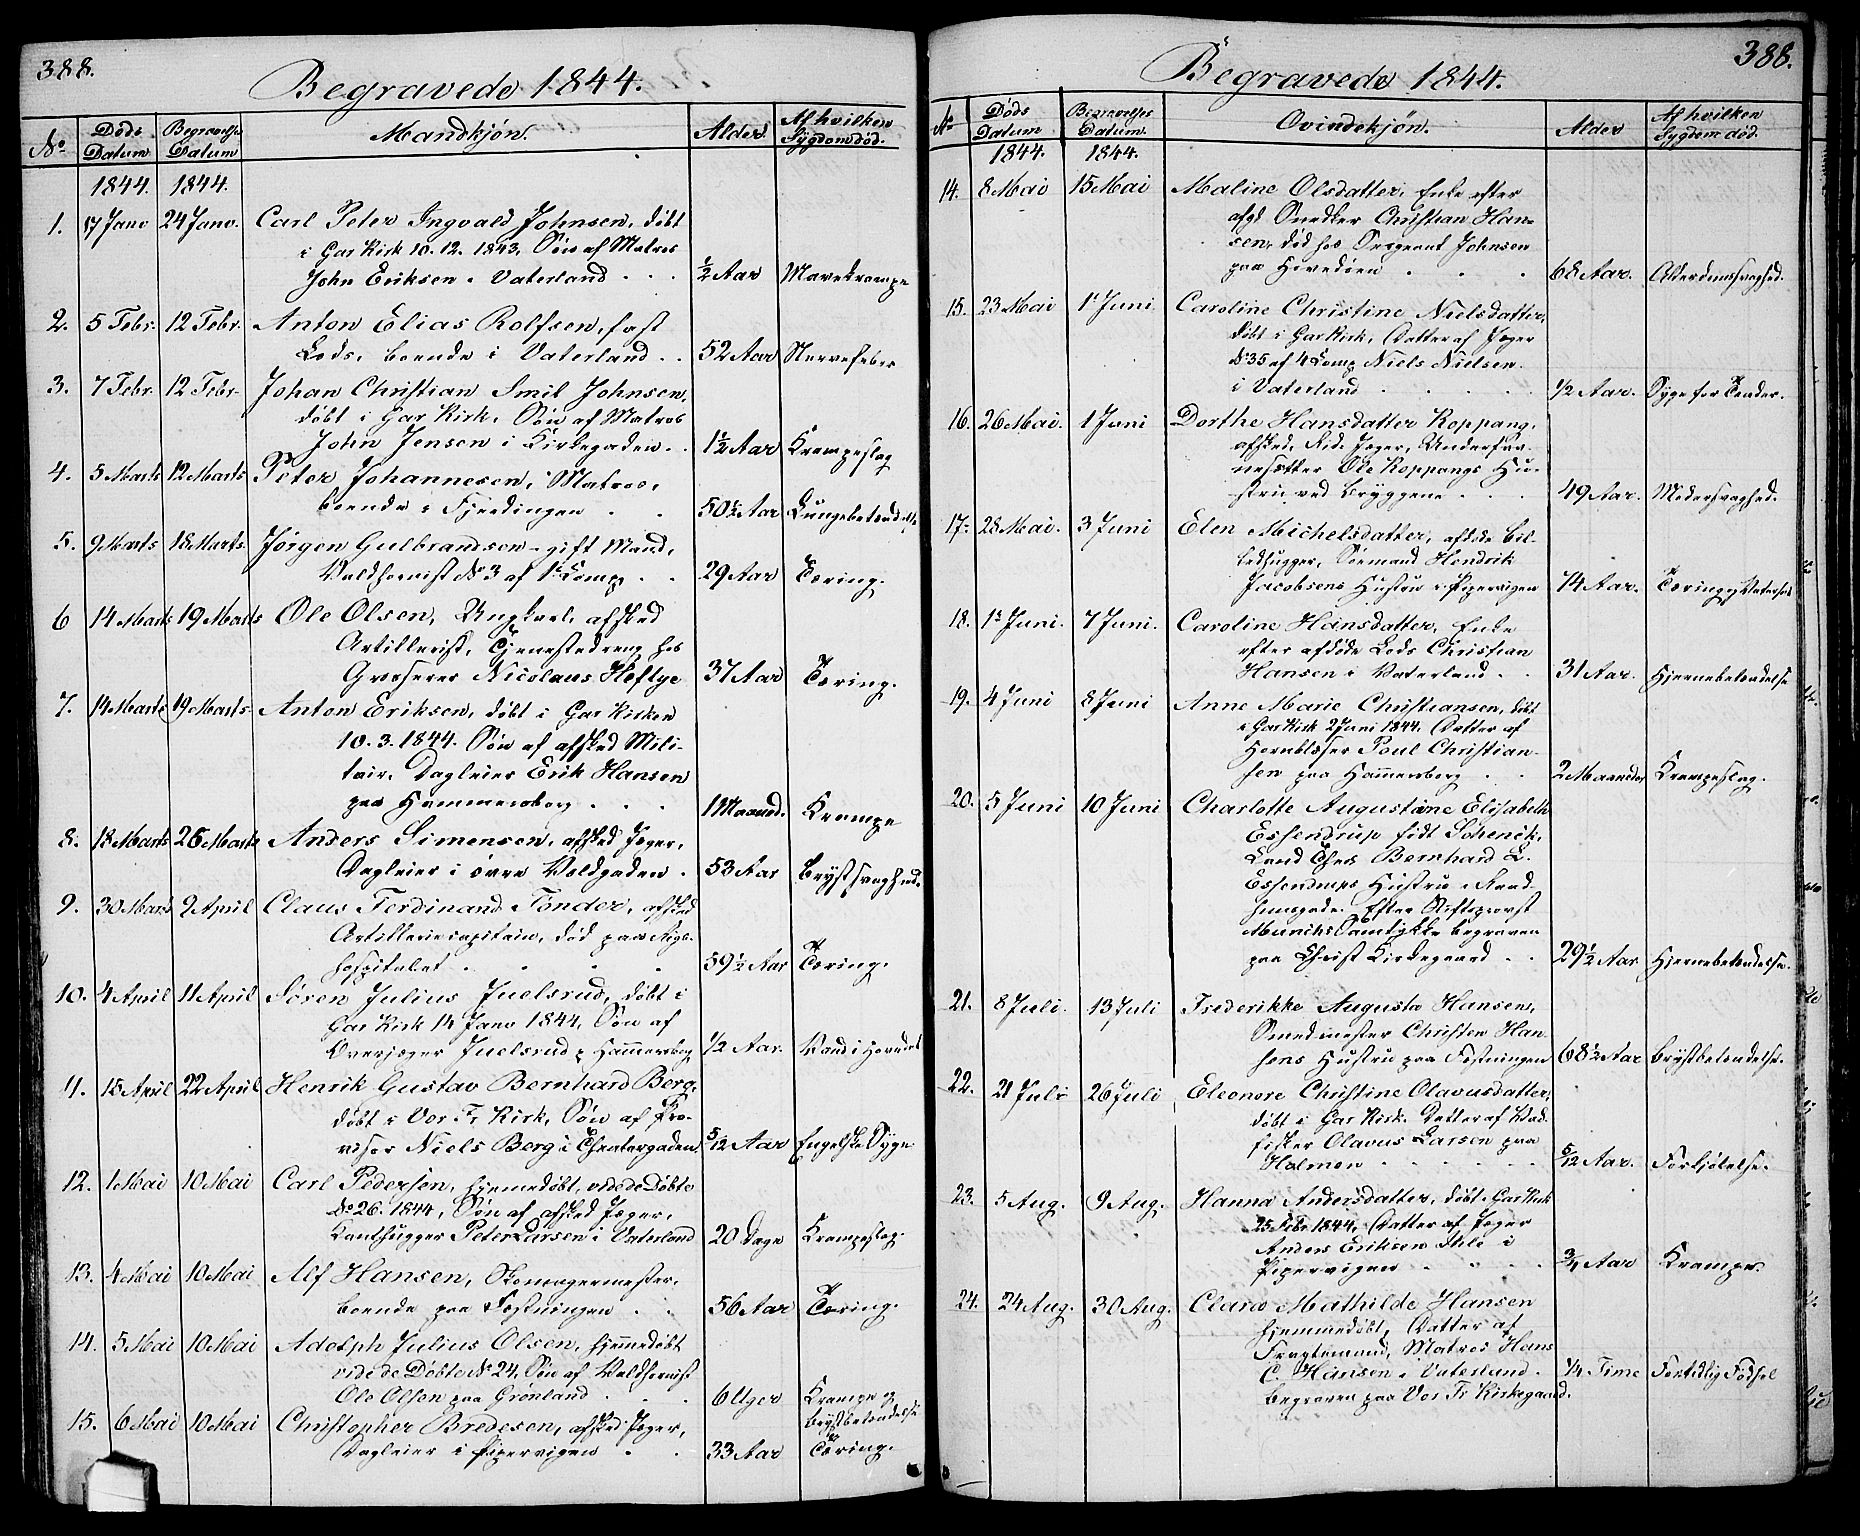 388.
Begravede 1844.
No. Døds Datum Begravelses Datum Mandkjøn. Alder. Af hvilken Sygdom død.
1844. 1844.
1. 17 Janr 24 Janr. Carl Peter Ingvald Johnsen, døbt
i Gar Kirk 10.12.1843, Søn af Matros
John Eriksen i Vaterland ½ Aar Mavekrampe
2. 5 Febr. 12 Febr. Anton Elias Rolfsen, fast
Lods, boende i Vaterland 52 Aar Nervefeber
3. 7 Febr. 12 Febr. Johan Christian Emil Johnsen,
døbt i Gar Kirk, Søn af Matros
John Jensen i Kirkegaden 1½ Aar Krampeslag
4. 5 Marts 12 Marts Peter Johannesen, Matros,
boende i Fjerdingen 50½ Aar Lungebetændelse
5. 9 Marts 18 Marts. Jørgen Gulbrandsen, gift Mand,
Valdhornist No 3 af 1ste Comp 29 Aar Tæring.
6 14 Marts 19 Marts Ole Olsen, Ungkarl, afsked
Artillerist, Tjenestedreng hos
Grosserer Nicolaus Heftye 37 Aar Tæring.
7. 14 Marts 19 Marts Anton Eriksen, døbt i Gar Kirken
10.3.1844. Søn af afsked Mili-
tair, Dagleier Erik Hansen
paa Hammersborg 1 Maaned. Krampe
8. 18 Marts 26 Marts Anders Simensen, afsked Jæger,
Dagleier i øvre Voldgaden 53 Aar Brystsvaghed.
9. 30 Marts 9 April Claus Ferdinand Tønder, afsked
Artilleriecapitain, død paa Rigs-
hospitalet 59½ Aar Tæring.
10. 4 April 11 April Søren Julius Juelsrud, døbt i
Gar Kirk 14 Janr 1844, Søn af
Overjæger Juelsrud p Hammersborg ½ Aar. Vand i Hovedet
11. 15 April 22 April Henrik Gustav Bernhard Berg,
døbt i Vor Fr Kirk, Søn af Pro-
visor Niels Berg i Theatergaden 5/12 Aar Engelske Syge
12. 1 Mai 10 Mai Carl Pedersen, hjemmedøbt, vide de Døbte
No 26. 1844, Søn af afsked Jæger,
Kanthugger Peter Larsen i Vaterland 20 Dage Krampeslag.
13. 4 Mai 10 Mai Alf Hansen, Skomagermester,
boende paa Fæstningen 56 Aar Tæring.
14. 5 Mai 10 Mai Adolph Julius Olsen, hjemmedøbt
vide de Døbte No 24, Søn af Valdhornist
Ole Olsen paa Grønland 6 Uger Krampe og Brystbetændelse
15. 6 Mai 10 Mai Christopher Bredesen, afsked Jæger,
Dagleier i Pipervigen 33 Aar Tæring.
388.
Begravede 1844.
No Døds Datum Begravelses Datum. Qvindekjøn. Alder Af hvilken Sygdom død.
1844. 1844.
14. 8 Mai 15 Mai Maline Olsdatter, Enke efter
afgl Snedker Christian Han-
sen, død hos Sergeant Johnsen
paa Hovedøen 68 Aar. Alderdomssvaghed.
15. 23 Mai 1 Juni Caroline Christine Nielsdatter,
døbt i Gar Kirk, Datter af Jæger
No 35 af 4 Comp Niels Nielsen
i Vaterland ½ Aar. Syge for Tænder.
16. 26 Mai. 1 Juni Dorthe Hansdatter Koppang,
afsked. Rid. Jæger,
Ole Koppangs Hu-
stru ved Bryggene 49 Aar. Modersvaghed.
17. 28 Mai. 3 Juni Elen Michelsdatter, afdøde Bil-
ledhugger, Sømand Hendrik
Jacobsens Hustru i Pipervigen 74 Aar. Tæring og Vatersot
18. 1 Juni. 7 Juni. Caroline Hansdatter, Enke
efter afdøde Lods Christian
Hansen i Vaterland 31 Aar. Hjernebetændelse
19. 4 Juni 8 Juni Anne Marie Christiansen, døbt
i Gar Kirk 2 Juni 1844, Datter af
Hornblæser Poul Christian-
sen paa Hammersborg 2 Maaneder Krampeslag.
20. 5 Juni 10 Juni Charlotte Augustine Elisabeth
Essendrup født Schenck,
Cand Theol Bernhard L.
Essendrups Hustru i Raad-
huusgade. Efter Stiftsprovst
Munchs Samtykke begraven
paa Christ Kirkegaard 29½ Aar Hjernebetændelse.
21. 8 Juli. 13 Juli Frederikke Augusta Hansen,
Smedmester Christen Han
sens Hustru paa Fæstningen 68½ Aar Brystbetændelse.
22. 21 Juli 26 Juli Eleonore Christine Olavusdatter,
døbt i Gar Kirk. Datter af
fisker Olavus Larsen paa
Holmen 5/12 Aar. Forkjølelse.
23. 5 Aug. 9 Aug. Hanna Andersdatter, døbt i Gar Kirk
25 Febr 1844, Datter af Jæger
Anders Eriksen Ihle i
Pipervigen ¾ Aar Krampe.
24. 24 Aug. 30 Aug. Clara Mathilde Hansen
hjemmedøbt, Datter af
Fragtemand, Matros Hans
C. Hansen i Vaterland.
Begraven paa Vor Fr Kirkegaard. ¼ Time Fortidlig Fødsel